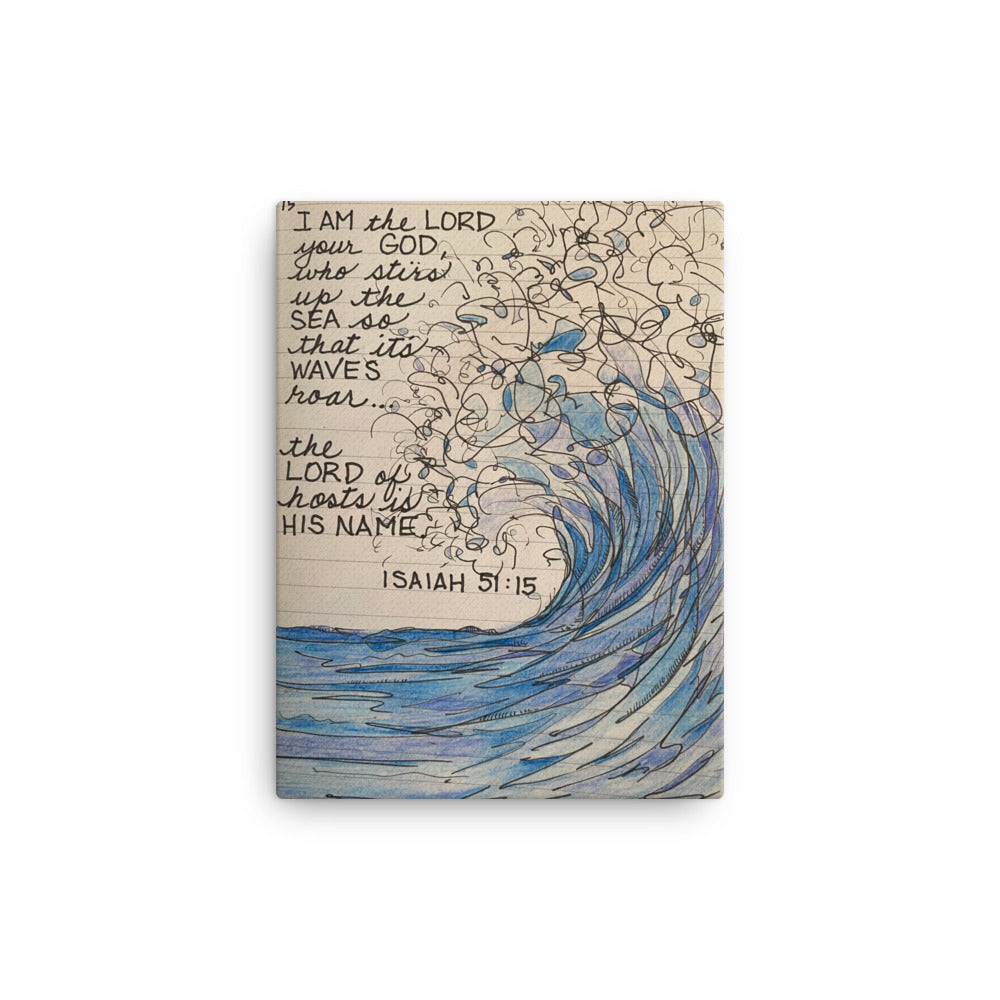 15
I AM the LORD
your GOD,
who stirs
up the
SEA so
that its
WAVES
roar...
the
LORD of
hosts is
HIS NAME.
ISAIAH 51:15